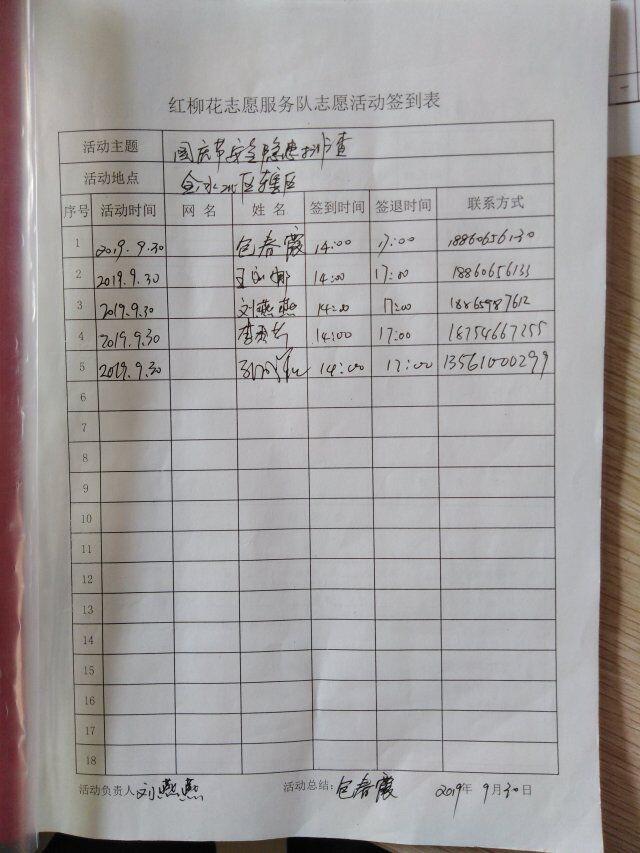 红柳花志愿服务队志愿活动签到表
活动主题 国庆节安全隐患排查
活动地点 金水社区辖区
序号 活动时间 网 名 姓 名 签到时间 签退时间 联系方式
1 2019.9.30 包春霞 14:00 17:00 18860656130
2 2019.9.30 王 娜 14:00 17:00 18860656133
3 2019.9.30 刘燕燕 14:00 17:00 18865987612
4 2019.9.30 李 14:00 17:00 18754667255
5 2019.9.30 14:00 17:00 13561000299
6
7
8
9
10
11
12
13
14
15
16
17
18
活动负责人 刘燕燕 活动总结: 包春霞 2019年 9月30日